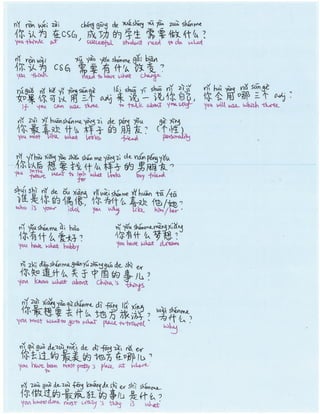 nǐ rèn wéi zài chéng gōng de xué shēng xū yào zuò shén me
你认为在 CSG, 成功的学生需要做什么?
you think at successful student need to do what
nǐ rèn wéi xū yào yǒu shén me gǎi biàn
你认为 CSG 需要有什么改变?
you think need to have what change
rú guǒ nǐ kě yǐ yòng sān gè lái shuō yī shuō nǐ zì jǐ nǐ huì yòng nǎ sān gè
如果你可以用三个 adj 来说一说你自己, 你会用哪三个 adj?
if you can use three to talk about yourself you will use which three
nǐ zuì xǐ huān shén me yàng zi de péng yǒu gè xìng
你最喜欢什么样子的朋友? (个性)
you most like what looks friend personality
nǐ yǐ hòu xiǎng yào zhǎo shén me yàng zi de nán péng yǒu
你以后想要找什么样子的男朋友?
you in the future want to look for what looks boy friend
shuí shì nǐ de ǒu xiàng nǐ wèi shén me xǐ huān tā/tā
谁是你的偶像, 你为什么喜欢他/她?
who is your idol you why like him/her
nǐ yǒu shén me ài hào nǐ yǒu shén me mèng xiǎng
你有什么爱好? 你有什么梦想?
you have what hobby you have what dream
nǐ zhī dào shén me guān yú zhōng guó de shì er
你知道什么关于中国的事儿?
you know what about China's things
nǐ zuì xiǎng yào qù shén me dì fāng lǚ xíng wèi shén me
你最想要去什么地方旅游? 为什么?
you most want to go to what place to travel why
nǐ qù guò de zuì měi de dì fāng zài nǎ er
你去过的最美的地方在哪儿?
you have been to most pretty's place at where
nǐ zuò guò de zuì fēng kuáng de shì er shì shén me
你做过的最疯狂的事儿是什么?
you have done most crazy's thing is what